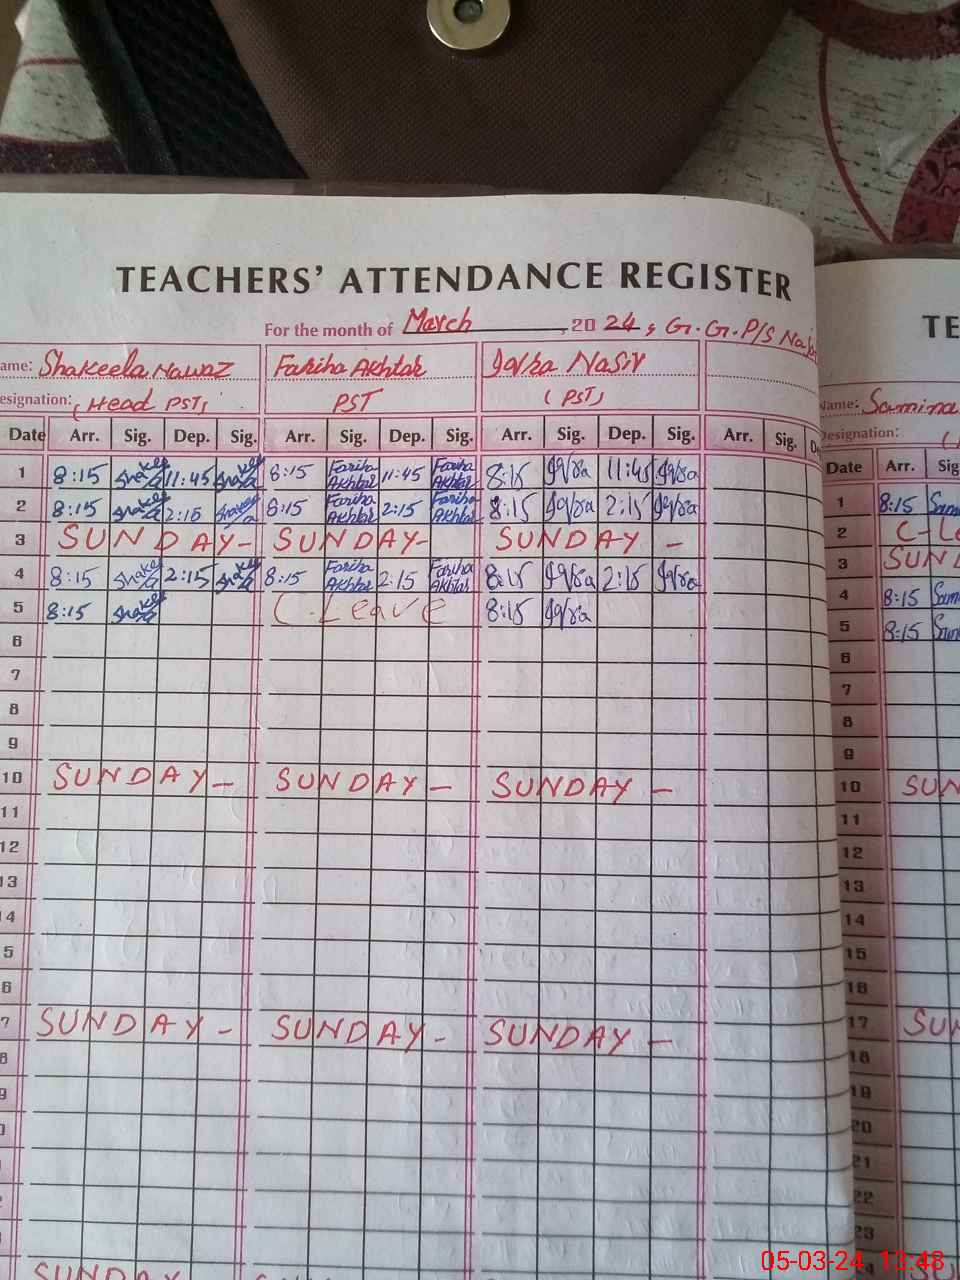 TEACHERS' ATTENDANCE REGISTER
TE
For the month of March, 2024, G.G.P/S
ame: Shakeela Nawaz Fariha Akhtar Iqra Nasir
Name: Samina
esignation: (Head PST) PST (PST)
Designation:
Date Arr. Sig. Dep. Sig. Arr. Sig. Dep. Sig. Arr. Sig. Dep. Sig. Arr. Sig. D
Date Arr. Sig
1 8:15 Shakeela 11:45 Shakeela 8:15 Fariha Akhtar 11:45 Fariha Akhtar 8:15 Iqra 11:45 Iqra
1 8:15 Sam
2 8:15 Shakeela 2:15 Shakeela 8:15 Fariha Akhtar 2:15 Fariha Akhtar 8:15 Iqra 2:15 Iqra
2 C-Le
3 SUNDAY- SUNDAY- SUNDAY -
3 SUND
4 8:15 Shakeela 2:15 Shakeela 8:15 Fariha Akhtar 2:15 Fariha Akhtar 8:15 Iqra 2:15 Iqra
4 8:15 Sam
5 8:15 Shakeela C-Leave 8:15 Iqra
5 8:15 Sam
6
6
7
7
8
8
9
9
10 SUNDAY- SUNDAY - SUNDAY -
10 SUN
11
11
12
12
13
13
14
14
5
15
6
16
7 SUNDAY - SUNDAY - SUNDAY -
17 SUN
8
18
9
19
20
21
22
23
SUNDAY
05-03-24 13:48